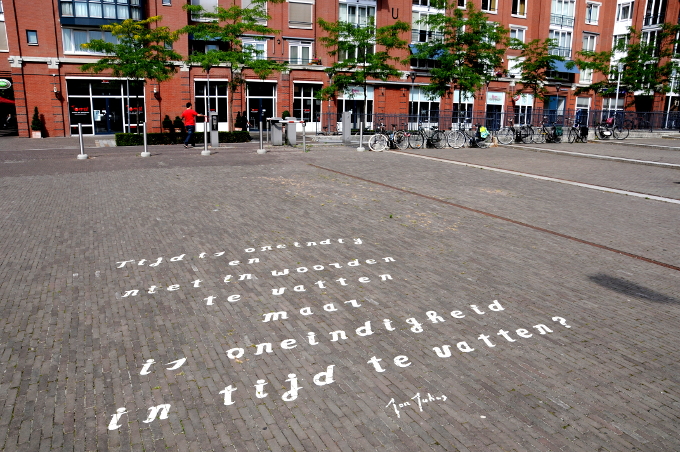 Tijd is oneindig
en
niet in woorden
te vatten
maar
is oneindigheid
in tijd te vatten?